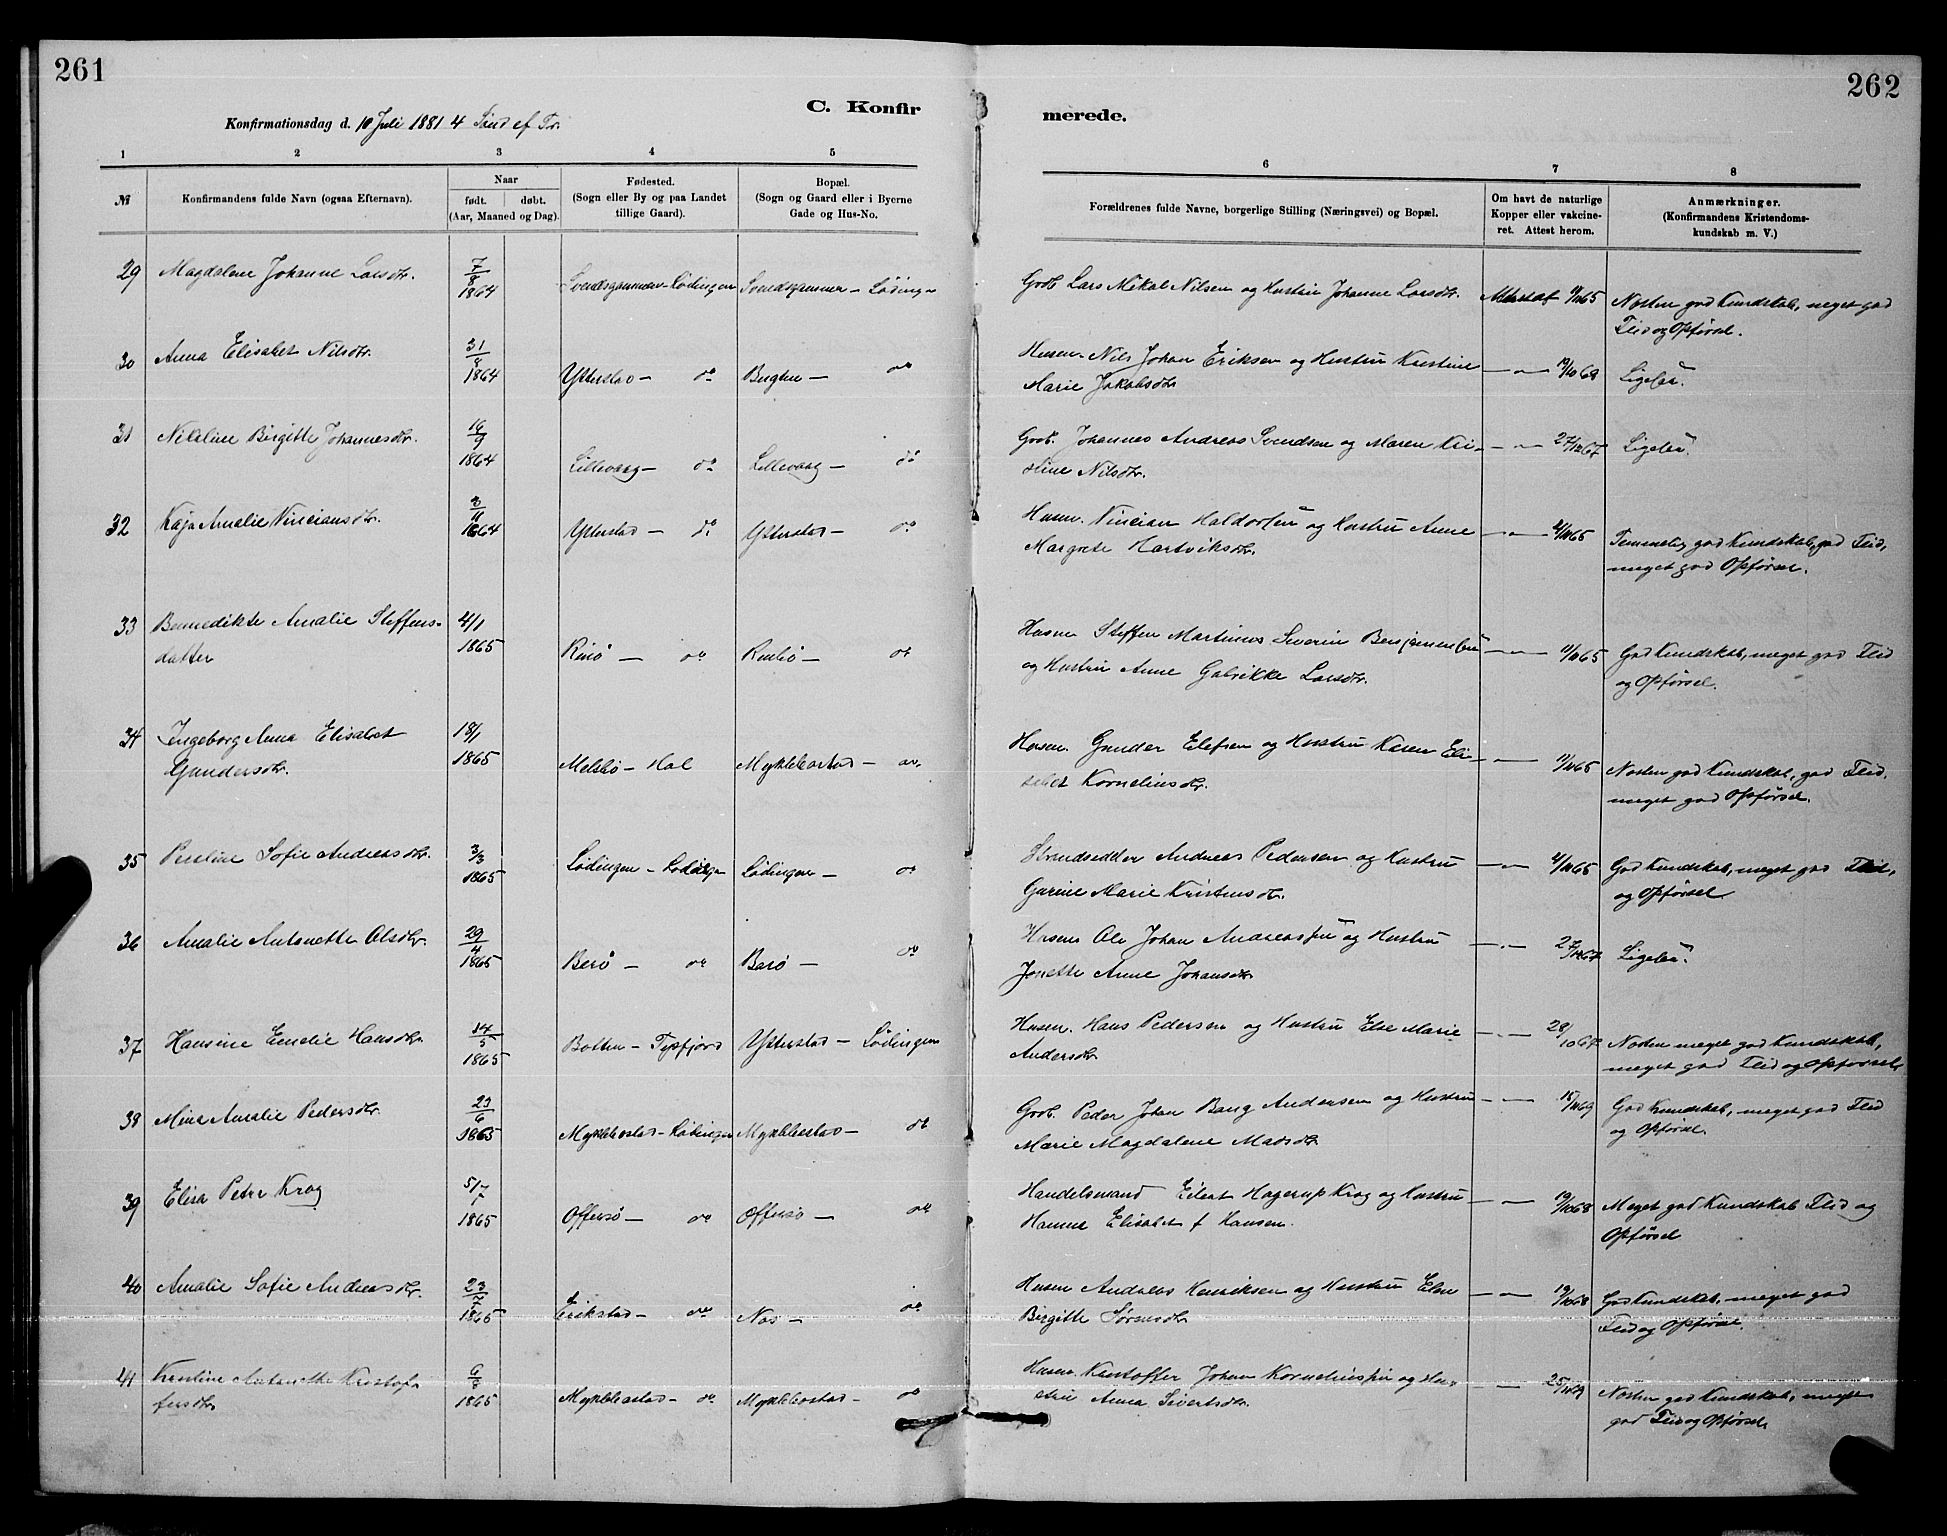 261
C. Konfir
Konfirmationsdag d. 10 Juli 1881 4 Sønd ef Tr.
1 2 3 4 5
№ Konfirmandens fulde Navn (ogsaa Efternavn). Naar født. døbt. (Aar, Maaned og Dag). Fødested. (Sogn eller By og paa Landet tillige Gaard). Bopæl. (Sogn og Gaard eller i Byerne Gade og Hus-No.
29 Magdalene Johanne Larsdtr. 7/8 1864 Svendsgammen - Lødingen Svendsgammen - Lødingen
30 Anna Elisabet Nilsdtr. 31/8 1864 Ytterstad - do Bugten - do
31 Nikoline Birgitte Johannesdtr. 16/9 1864 Lillevaag - do Lillevaag - do
32 Kaja Amalie Vinciansdtr. 1864 Ytterstad - do Ytterstad - do
33 Bennedikte Amalie Steffens-
datter 4/1 1865 Rinø - do Rinø - do
34 Ingeborg Anna Elisabet
Gundersdtr. 18/1 1865 Melsbø - Hol Mykkleostad - do
35 Petrline Sofie Andreasdtr. 3/3 1865 Lødingen - Lødingen Lødingen - do
36 Amalie Antonette Olsdtr. 29/4 1865 Barø - do Barø - do
37 Hansine Emelie Hansdtr. 14/5 1865 Botten - Tysfjord Ytterstad - Lødingen
38 Mina Amalie Pedersdtr. 23/6 1865 Mykkleostad - Lødingen Mykkleostad - do
39 Elisa Petra Krog 5/7 1865 Offersø - do Offersø - do
40 Amalie Sofie Andreasdtr. 23/7 1865 Erikstad - do Nes - do
41 Kristine Antonette Kristof-
fersdtr 1865 Mykkleostad - do Mykkleostad - do
262
merede.
6 7 8
Forældrenes fulde Navne, borgerlige Stilling (Næringsvei) og Bopæl. Om havt de naturlige Kopper eller vakcineret. Attest herom. Anmærkninger. (Konfirmandens Kristendomskundskab m. V.)
Grdb. Lars Mikal Nilsen og Hustru Johanne Larsdtr. Næsten god Kundskab, meget god
Flid og Opførsel.
Husm. Nils Johan Eriksen og Hustru Kristine
Marie Jakobsdtr - " - 19/10 69 Ligesaa.
Grdb. Johannes Andreas Svendsen og Maren Kri-
stine Nilsdtr. - " - 27/10 67 Ligesaa.
Husm. Vincian Haldorsen og Hustru Anne
Margrete Hartviksdtr. - " - Temmelig god Kundskab, god Flid,
meget god Opførsel.
Husm Steffen Martinus Severin Benjaminsen
og Hustru Anne Gabrikke Larsdtr. - " - God Kundskab, meget god Flid
og Opførsel.
Husm. Gunder Elefsen og Hustru Karen Eli-
sabet Kornelinsdtr. - " - Næsten god Kundskab, god Flid,
meget god Opførsel.
Strandsidder Andreas Pedersen og Hustru
Gurine Marie Kristensdtr. - " - God Kundskab, meget god Flid,
og Opførsel
Husm Ole Johan Andreassen og Hustru
Jonette Anne Johansdtr - " - Ligesaa.
Husm. Hans Pedersen og Hustru Else Marie
Andersdtr - " - 28/10 67 Næsten meget god Kundskab,
meget god Flid og Opførsel.
Grdb. Peder Johan Bang Andersen og Hustru
Marie Magdalene Madsdtr - " - God Kundskab, meget god Flid
og Opførsel.
Handelsmand Eilert Hagerup Krog og Hustru
Hanna Elisabet f Hansen. - " - 19/10 68 Meget god Kundskab Flid og
Opførsel
Husm Andreas Henriksen og Hustru Elen
Birgitte Sørensdtr - " - 19/10 68 God Kundskab, meget god
Flid og Opførsel.
Husm Kristoffer Johan Korneliussen og Hu-
stru Anna Sivertsdtr. - " - Næsten god Kundskab, meget
god Flid og Opførsel.